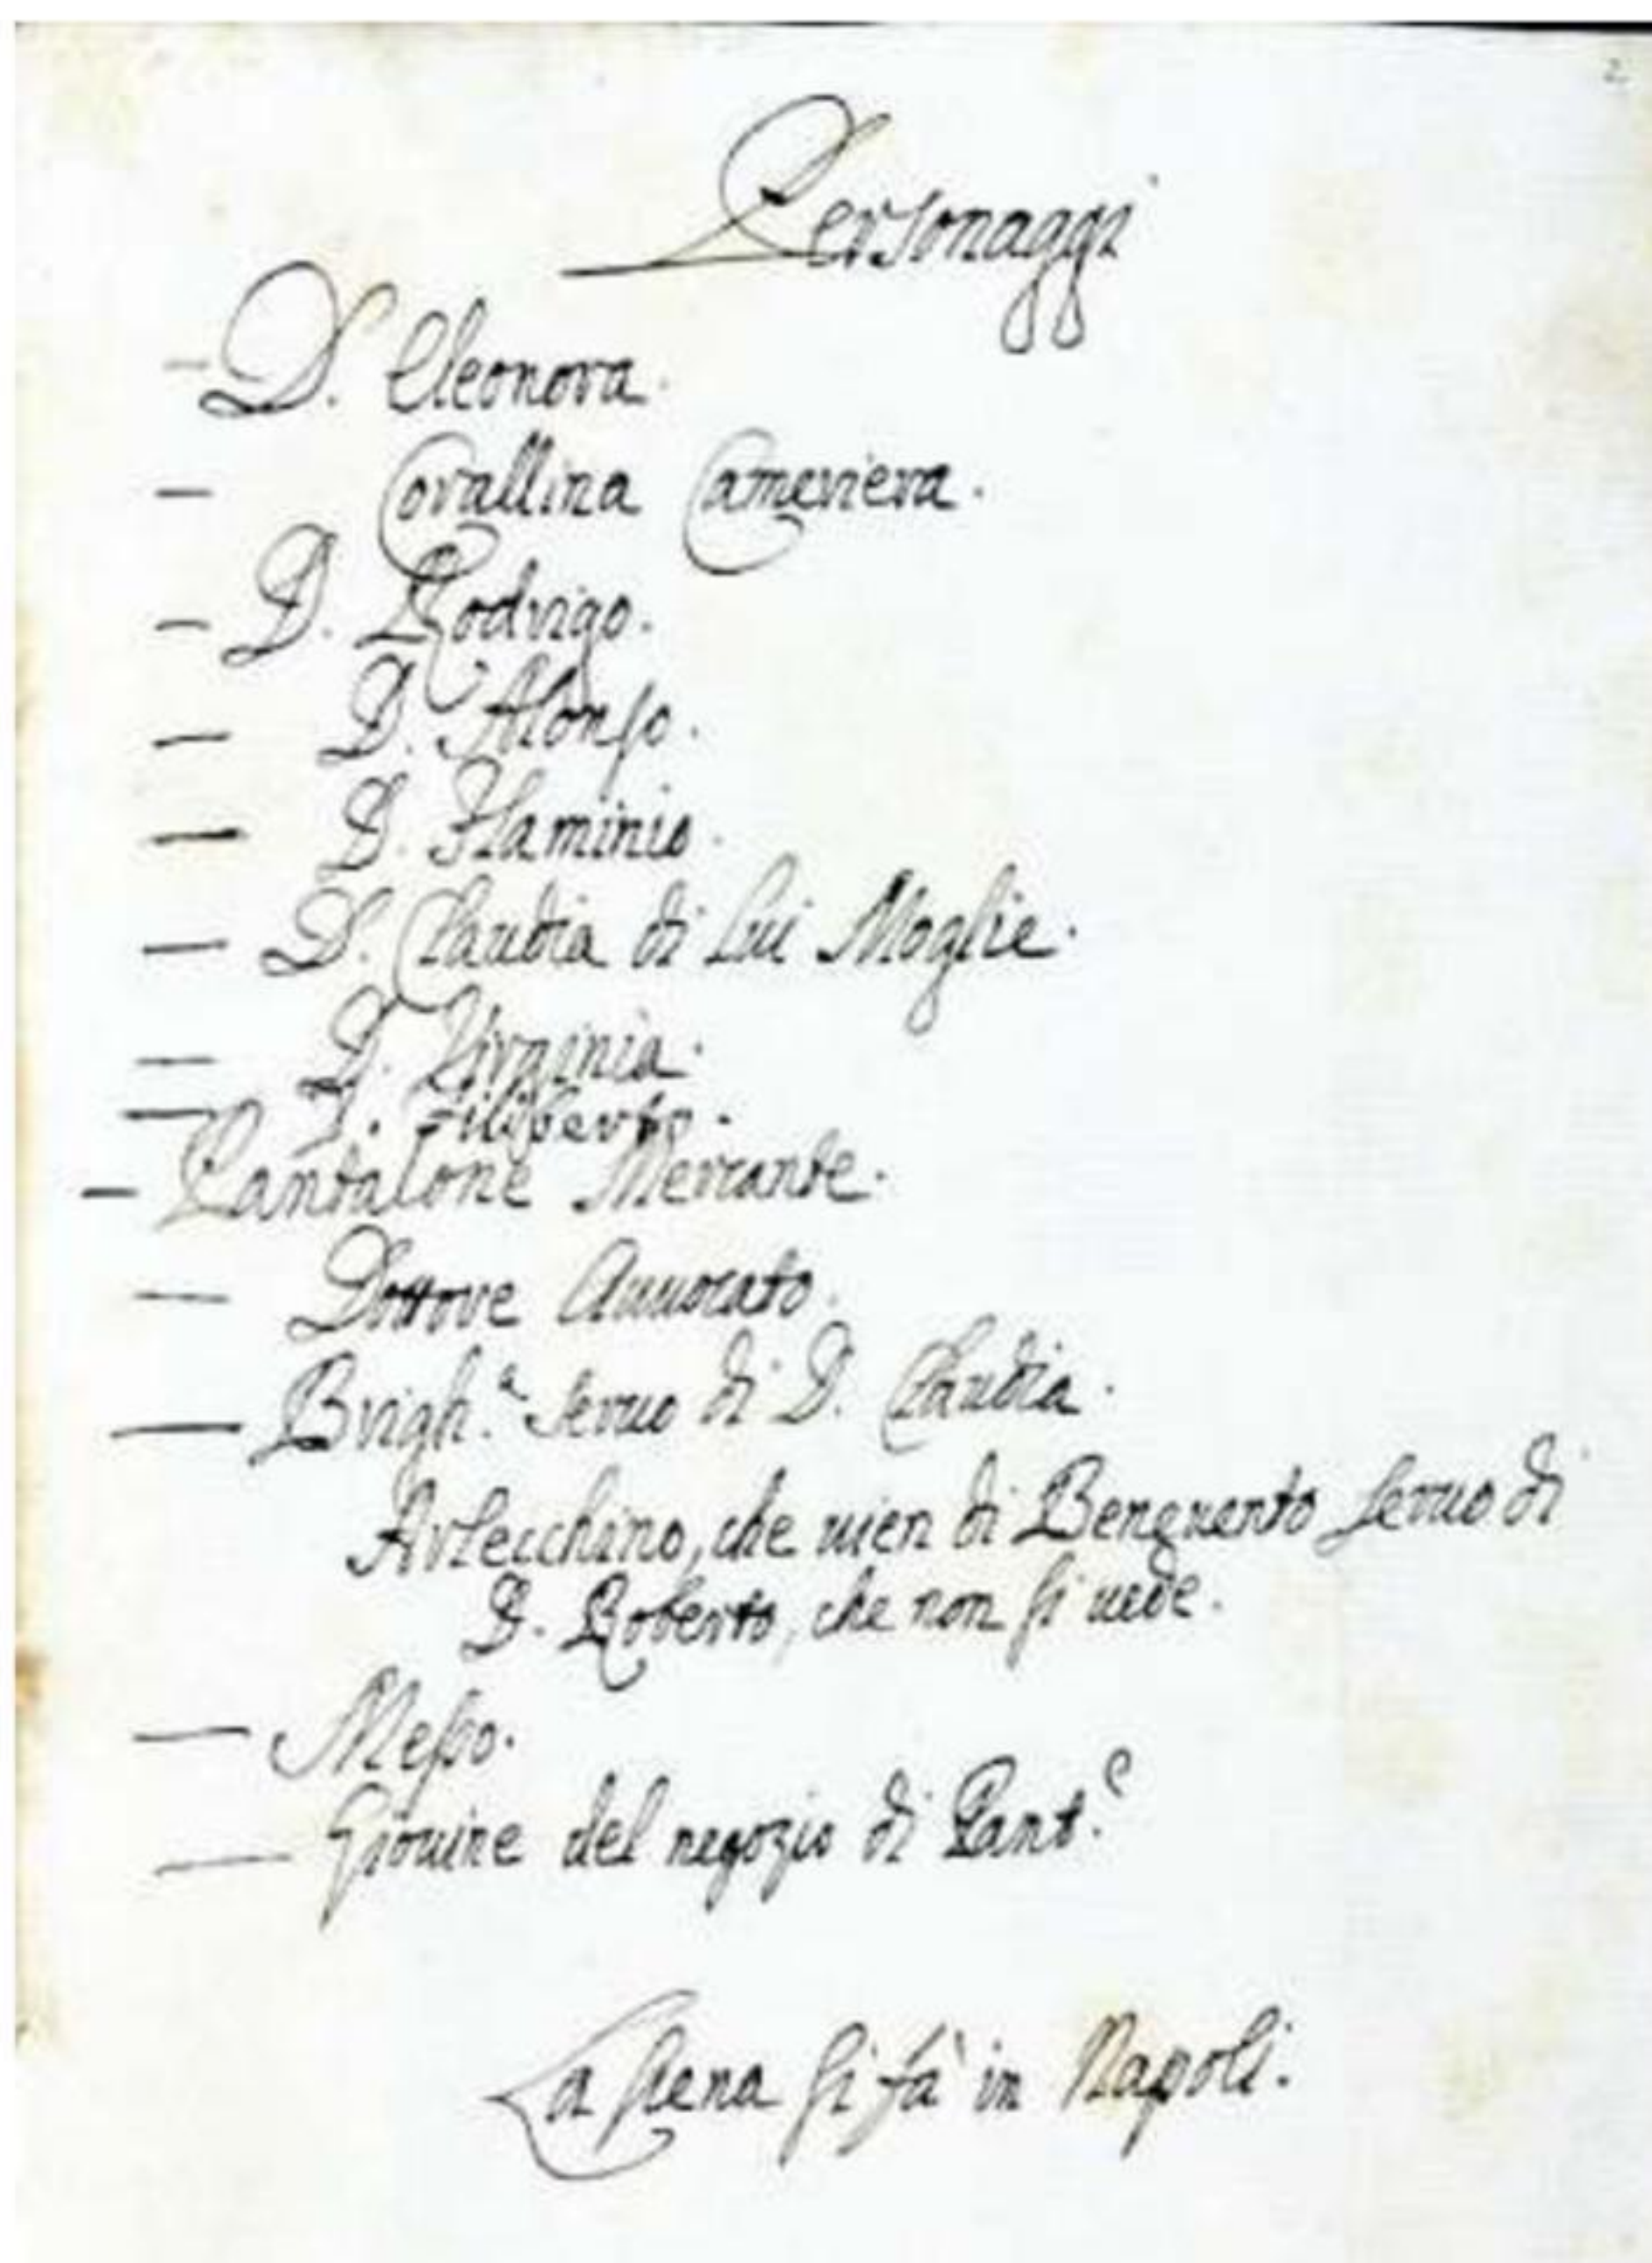 2
Personaggi
— D. Eleonora.
— Corallina Cameriera.
— D. Rodrigo.
— D. Alonso.
— D. Flaminio.
— D. Claudia di Lui Moglie.
— D. Virginia.
— D. Filiberto.
— Pantalone Mercante.
— Dottore Auuocato.
— Brigh.ª Seruo di D. Claudia.
Arlecchino, che uien di Beneuento seruo di
D. Roberto, che non si uede.
— Messo.
— Giouine del negozio di Pant.e
La scena si fà in Napoli.